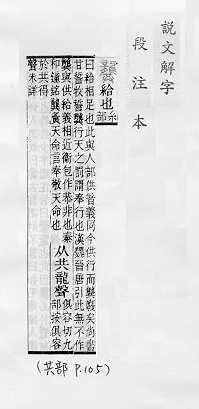 說文解字
段注本
龔給也糸部
曰給相足也此與人部供音義同今供行而龔廢矣尚書
甘誓牧誓龔行天之罰謂奉行也漢魏晉唐引此無不作
龔與供給義相近衞包作恭非也秦
和鐘銘龔夤天命言奉敬天命也
从共龍聲
俱容切九
部按俱容
於共得
聲未詳
(共部 P.105)